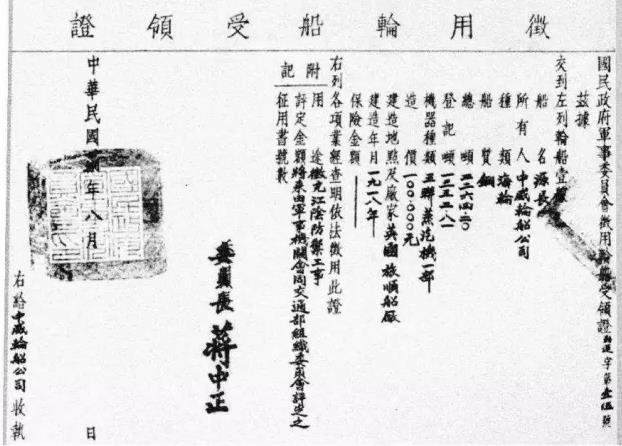 徵用輪船受領證
國民政府軍事委員會徵用輪船受領證 字第壹伍號
茲據
交到左列輪船壹艘
船名 源長
所有人 中威輪船公司
種類 海輪
船質 鋼
總噸 二二六四·二〇
登記噸 一三五二·八一
機器種類 五聯蒸汽機一部
造價 一〇〇·〇〇〇元
建造地點及廠家 英國旅順船廠
建造年月 一九一八年
保險金額
右列各項業經查明依法徵用此證
附記
用途 徵充江陰防禦工事
評定金額 將來由軍事機關會同交通部組織委員會評定之
征用書號數
委員長 蔣中正
中華民國 年八月 日
右給中威輪船公司收執